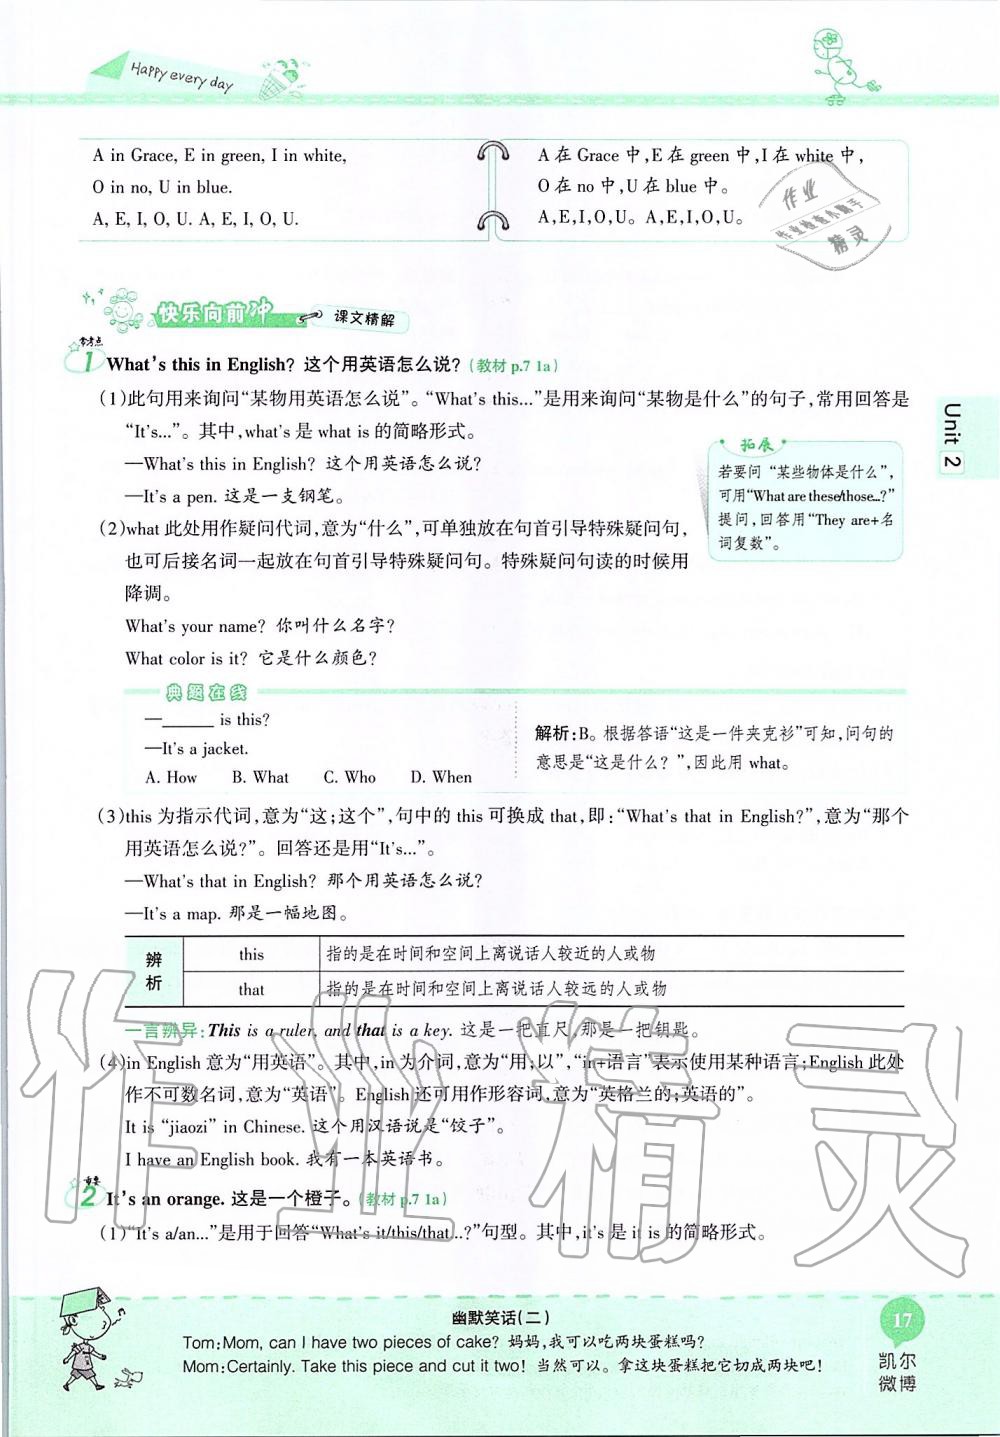 Happy every day
A in Grace, E in green, I in white,
O in no, U in blue.
A, E, I, O, U. A, E, I, O, U.
A 在 Grace 中,E 在 green 中,I 在 white 中,
O 在 no 中,U 在 blue 中。
A,E,I,O,U。A,E,I,O,U。
作业
精灵
快乐向前冲 课文精解
常考点
1 What's this in English? 这个用英语怎么说?(教材 p.7 1a)
(1)此句用来询问“某物用英语怎么说”。“What's this...”是用来询问“某物是什么”的句子,常用回答是
“It's...”。其中,what's 是 what is 的简略形式。
—What's this in English? 这个用英语怎么说?
—It's a pen. 这是一支钢笔。
拓展
若要问“某些物体是什么”,
可用“What are these/those...?”
提问,回答用“They are+名
词复数”。
Unit 2
(2)what 此处用作疑问代词,意为“什么”,可单独放在句首引导特殊疑问句,
也可后接名词一起放在句首引导特殊疑问句。特殊疑问句读的时候用
降调。
What's your name? 你叫什么名字?
What color is it? 它是什么颜色?
典题在线
—______ is this?
—It's a jacket.
A. How B. What C. Who D. When
解析:B。根据答语“这是一件夹克衫”可知,问句的
意思是“这是什么? ”,因此用 what。
(3)this 为指示代词,意为“这;这个”,句中的 this 可换成 that,即:“What's that in English?”,意为“那个
用英语怎么说?”。回答还是用“It's...”。
—What's that in English? 那个用英语怎么说?
—It's a map. 那是一幅地图。
辨析
this 指的是在时间和空间上离说话人较近的人或物
that 指的是在时间和空间上离说话人较远的人或物
一言辨异:This is a ruler, and that is a key. 这是一把直尺,那是一把钥匙。
(4)in English 意为“用英语”。其中,in 为介词,意为“用,以”,“in+语言”表示使用某种语言;English 此处
作不可数名词,意为“英语”。English还可用作形容词,意为“英格兰的;英语的”。
It is “jiaozi” in Chinese. 这个用汉语说是“饺子”。
I have an English book. 我有一本英语书。
重要
2 It's an orange. 这是一个橙子。(教材 p.7 1a)
(1)“It's a/an...”是用于回答“What's it/this/that...?”句型。其中,it's 是 it is 的简略形式。
作业精灵
幽默笑话(二)
Tom:Mom, can I have two pieces of cake? 妈妈,我可以吃两块蛋糕吗?
Mom:Certainly. Take this piece and cut it two! 当然可以。拿这块蛋糕把它切成两块吧!
17
凯尔
微博